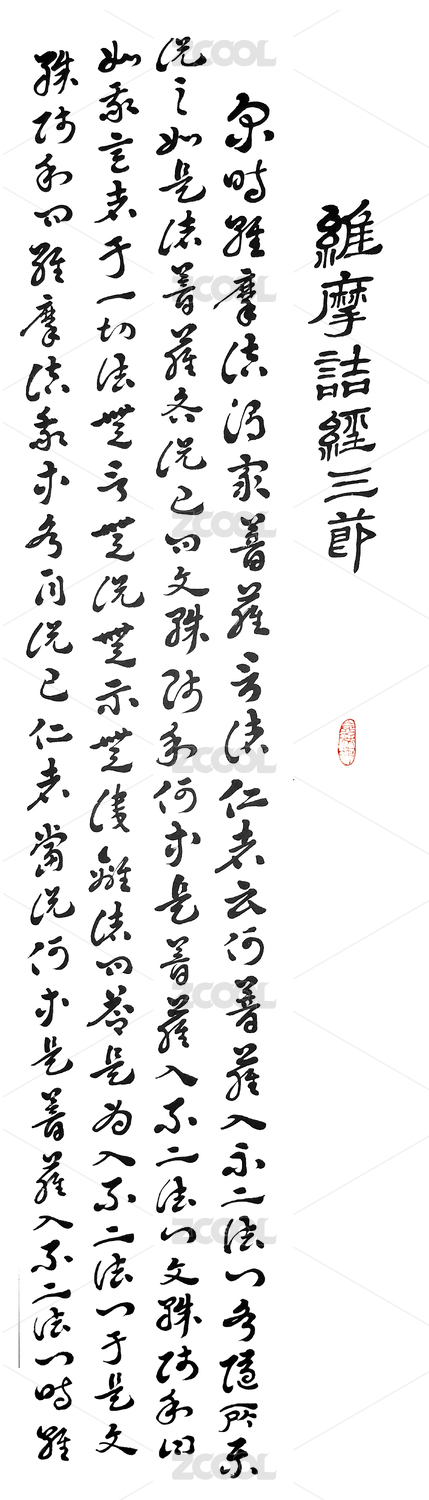 維摩詰經三節
尔時維摩詰謂眾菩薩言諸仁者云何菩薩入不二法門各隨所樂
說之如是諸菩薩各說已問文殊師利何等是菩薩入不二法門文殊師利曰
如我意者于一切法無言無說無示無識離諸問答是為入不二法門于是文
殊師利問維摩詰我等各自說已仁者當說何等是菩薩入不二法門時維
ZCOOL
ZCOOL
ZCOOL
ZCOOL
ZCOOL
ZCOOL
ZCOOL